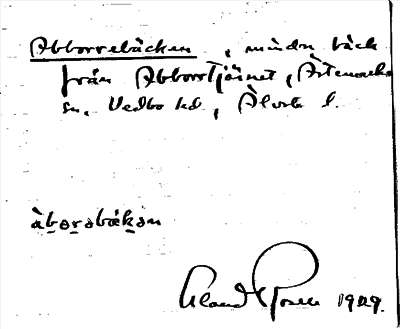 Abborrebäcken, mindre bäck
från Abborrtjärnet, Ärtemarks
sn, Vedbo hd, Älvsb l.
àborəbäkən
Claud Rosén 1929.